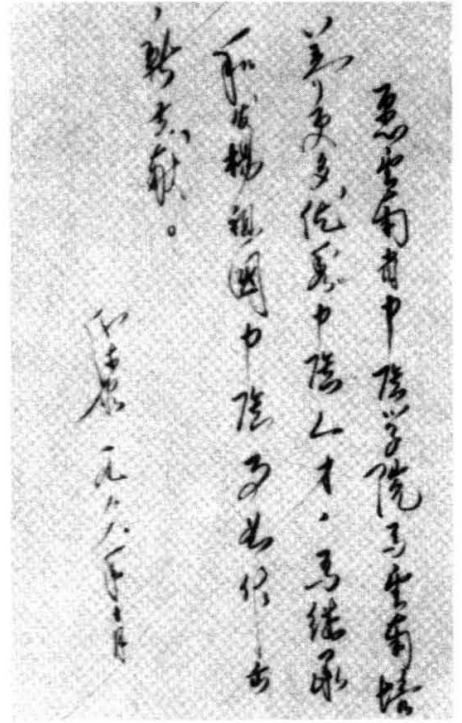 愿云南省中医学院为云南培
养更多优秀中医人才，为继承
和发扬祖国中医事业作出
新贡献。
一九八八年十月